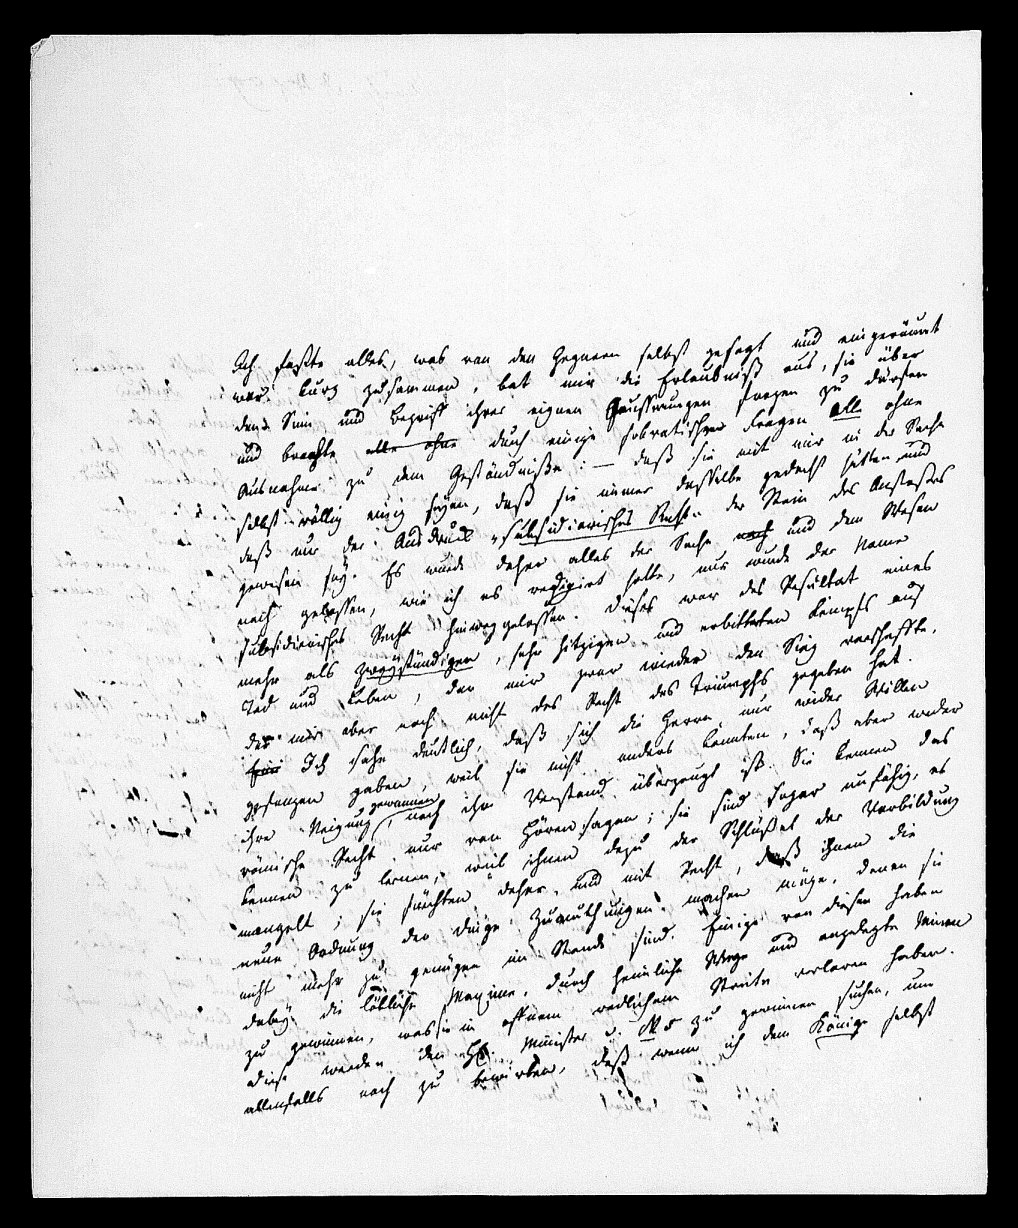 Ich faßte alles, was von den Gegnern selbst gesagt und eingeräumt
war kurz zusammen, bat mir die Erlaubniß aus, sie über
den Sinn und Begriff ihrer eignen Aeusserungen fragen zu dürfen
und brachte, alle ohne durch einige sokratische Fragen all ohne
Ausnahme zu dem Geständniße: — daß sie mit mir in der Sache
selbst völlig einig seyen, daß sie immer dasselbe gedacht hätten und
daß nur der Ausdruck "subsidiarisches Recht" der Stein des Anstoßes
gewesen sey. Es wurde daher alles der Sache nach und dem Wesen
nach gelassen, wie ich es redigirt hatte, nur wurde der Name
subsidiarisches Recht hinweggelassen. Dieses war das Resultat eines
mehr als zweystündigen, sehr hitzigen und erbitterten Kampfs auf
Tod und Leben, der mir zwar wieder den Sieg verschaffte,
der mir aber noch nicht das Recht des Triumphs gegeben hat.
Ich sahe deutlich, daß sich die Herrn nur wider Willen
gefangen gaben, weil sie nicht anders konnten, daß aber weder
ihre Neigung gewonnen, noch ihr Verstand überzeugt ist. Sie kennen das
römische Recht nur von Hörensagen; sie sind sogar unfähig, es
kennen zu lernen, weil ihnen dazu der Schlüßel der Vorbildung
mangelt; sie fürchten daher, und mit Recht, daß ihnen die
neue Ordnung der Dinge Zumuthungen machen möge, denen sie
nicht mehr zu genügen im Stande sind. Einige von diesen haben
dabey die löbliche Maxime, durch heimliche Wege und angelegte Minen
zu gewinnen, was sie in offnem redlichem Streite verloren haben.
Diese werden den H. Minister v. M. zu gewinnen suchen, um
allenfalls noch zu bewirken, daß wenn ich dem Könige selbst